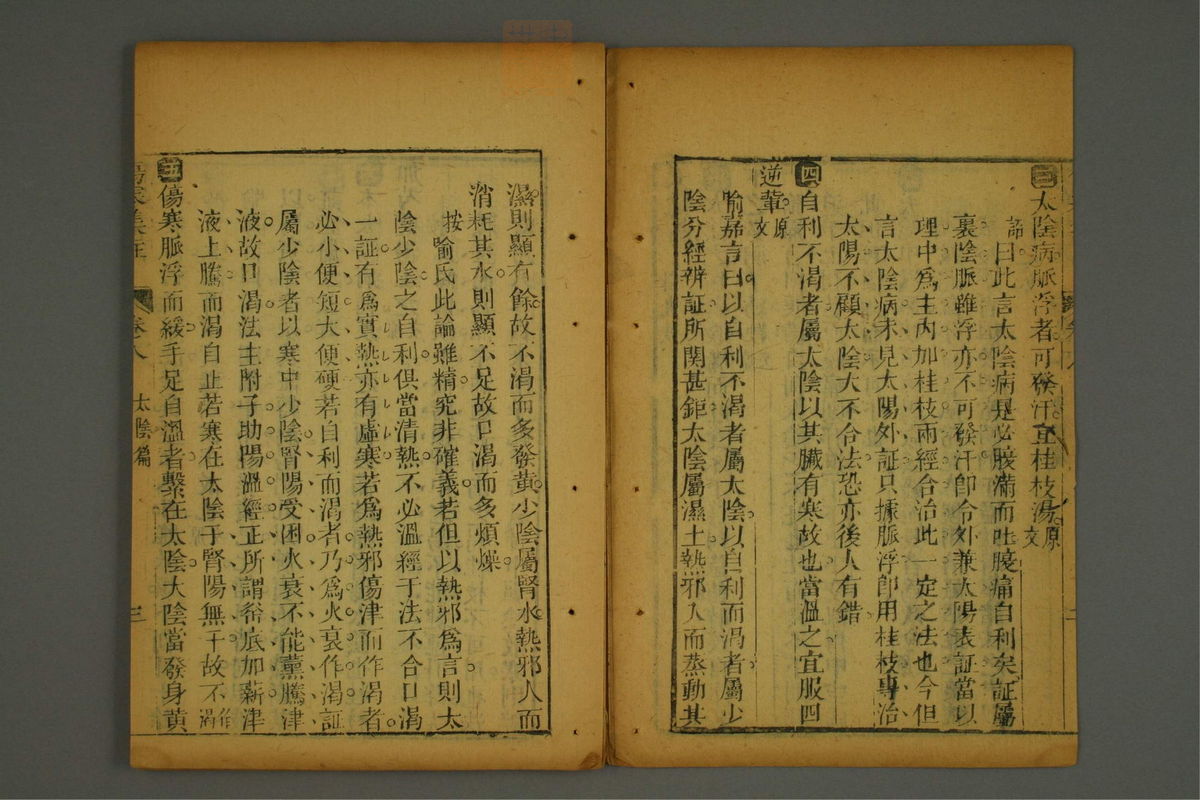 三太陰病脈浮者可發汗宜桂枝湯原文
諦曰此言太陰病是必腹滿而吐腹痛自利矣証屬
裏陰脈雖浮亦不可發汗卽令外兼太陽表証當以
理中爲主內加桂枝兩經合治此一定之法也今但
言太陰病未見太陽外証只據脈浮卽用桂枝專治
太陽不顧太陰大不合法恐亦後人有錯
四自利不渴者屬太陰以其臟有寒故也當溫之宜服四
逆輩原文
喻嘉言曰以自利不渴者屬太陰以自利而渴者屬少
陰分經辨証所関甚鉅太陰屬濕土熱邪入而蒸動其
濕則顯有餘故不渴而多發黃少陰屬腎水熱邪入而
消耗其水則顯不足故口渴而多煩燥
按喻氏此論雖精究非確義若但以熱邪爲言則太
陰少陰之自利俱當清熱不必溫經于法不合口渴
一証有爲實熱亦有虛寒若爲熱邪傷津而作渴者
必小便短大便硬若自利而渴者乃爲火衰作渴証
屬少陰者以寒中少陰腎陽受困火衰不能薰騰津
液故口渴法主附子助陽溫經正所謂釜底加薪津
液上騰而渴自止若寒在太陰于腎陽無干故不作渴
五傷寒脈浮而緩手足自溫者繫在太陰太陰當發身黃
卷八
太陰篇
三